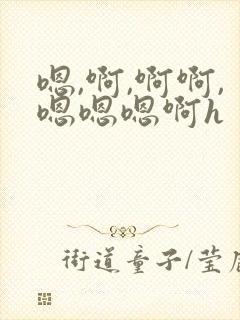 嗯,啊,啊啊,
嗯嗯嗯啊h
街道童子/莹